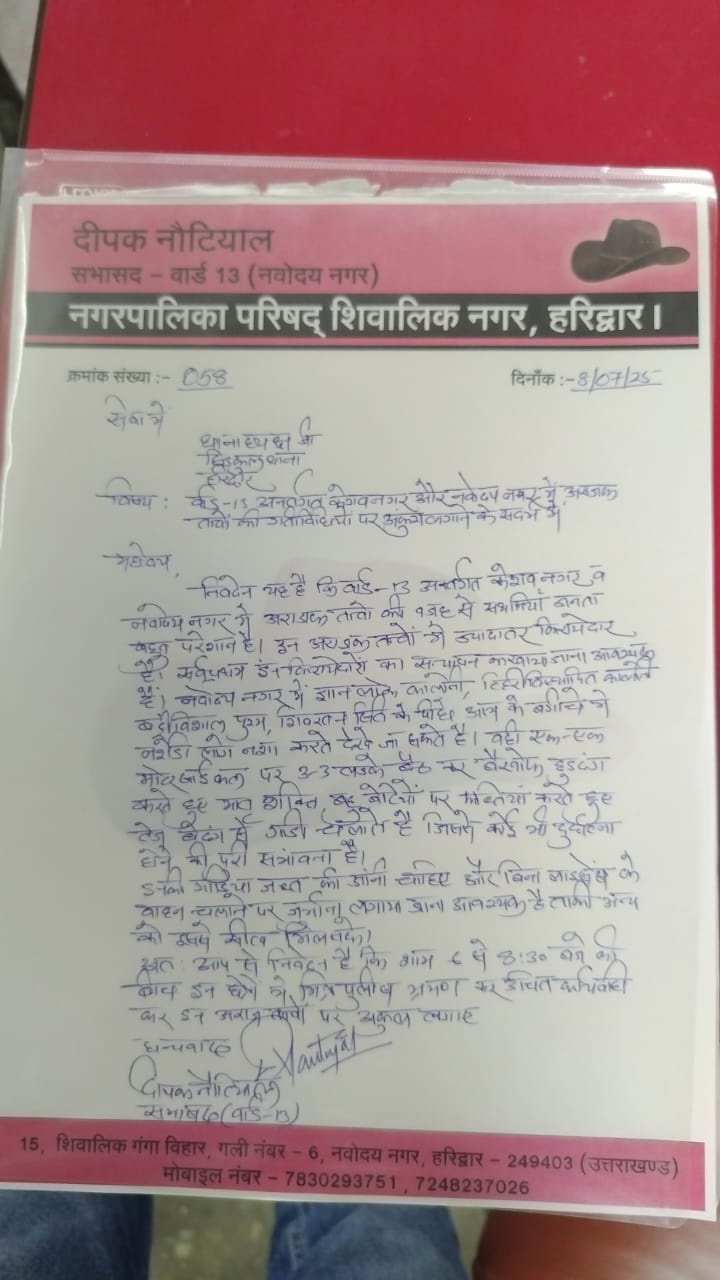 दीपक नौटियाल
सभासद – वार्ड 13 (नवोदय नगर)
नगरपालिका परिषद् शिवालिक नगर, हरिद्वार।
क्रमांक संख्या :- 058
दिनाँक :- 8/07/25
सेवा में
थानाध्यक्ष जी
सिडकुल थाना
हरिद्वार
विषय : वार्ड-13 अन्तर्गत केशवनगर और नवोदय नगर में अराजक
तत्वों की गतिविधियों पर अंकुश लगाने के संदर्भ में
महोदय,
निवेदन यह है कि वार्ड-13 अन्तर्गत केशव नगर व
नवोदय नगर में अराजक तत्वों की वजह से जनता
बहुत परेशान है। इन अराजक तत्वों में ज्यादातर किरायेदार
है। सर्वप्रथम इन किरायेदारों का सत्यापन करवाया जाना आवश्यक
है। नवोदय नगर में ज्ञान लोक कालोनी, टिहरी विस्थापित कालोनी
बद्रीविशाल पुरम, के पीछे आम के बगीचे में
नशेडी लोग नशा करते देखे जा सकते है। वही एक-एक
मोटर साईकल पर 3-3 लडके बैठ कर बेखौफ हुडदंग
करते हुए मातृ शक्ति, बहू बेटियों पर फब्तियां करते हुए
तेज गाडी चलाते है जिससे कोई भी दुर्घटना
होने की पूरी संभावना है।
इनकी गाडिया जब्त की जानी चाहिए और बिना लाइसेंस के
वाहन चलाने पर जुर्माना लगाया जाना आवश्यक है ताकी अन्य
को इससे सीख मिल सके।
अतः आप से निवेदन है कि शाम 6 से 8:30 बजे की
बीच इन क्षेत्रों में मित्र पुलिस भ्रमण कर उचित कार्यवाही
कर इन अराजक तत्वों पर अंकुश लगाए
धन्यवाद
Nautiyal
दीपक नौटियाल
सभासद (वार्ड-13)
15, शिवालिक गंगा विहार, गली नंबर – 6, नवोदय नगर, हरिद्वार – 249403 (उत्तराखण्ड)
मोबाइल नंबर – 7830293751 , 7248237026